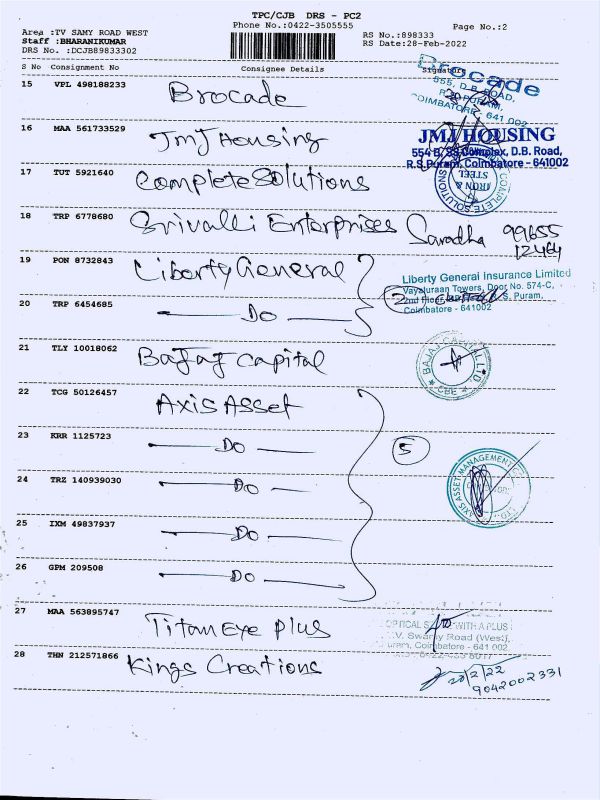 TPC/CJB DRS - PC2
Phone No.:0422-3505555
Page No.:2
Area :TV SAMY ROAD WEST
Staff :BHARANIKUMAR
DRS No. :DCJB89833302
RS No.:898333
RS Date:28-Feb-2022
S No Consignment No Consignee Details Signature
15 VPL 498188233 Brocade
Brocade
555, D.B. ROAD,
R.S. PURAM,
COIMBATORE - 641 002
16 MAA 561733529 JMJ Housing
JMJ HOUSING
554 B, SS Complex, D.B. Road,
R.S. Puram, Coimbatore - 641002
17 TUT 5921640 Complete Solutions
COMPLETE SOLUTIONS
IRON &
STEEL
18 TRP 6778680 Srivalli Enterprises Saradha 99655
12464
19 PON 8732843 Liberty General
Liberty General Insurance Limited
Vayaluraan Towers, Door No. 574-C,
2nd Floor, R.S. Puram,
Coimbatore - 641002
2
20 TRP 6454685 Do
21 TLY 10018062 Bajaj Capital
BAJAJ CAPITAL LTD.
CBE
22 TCG 50126457 Axis Asset
23 KRR 1125723 Do
5
24 TRZ 140939030 Do
AXIS ASSET MANAGEMENT CO. LTD.
25 IXM 49837937 Do
26 GPM 209508 Do
27 MAA 563895747 Titan Eye Plus
OPTICAL WITH A PLUS
T.V. Swamy Road (West),
Puram, Coimbatore - 641 002
28 THN 212571866 Kings Creations
28/2/22
9042002331